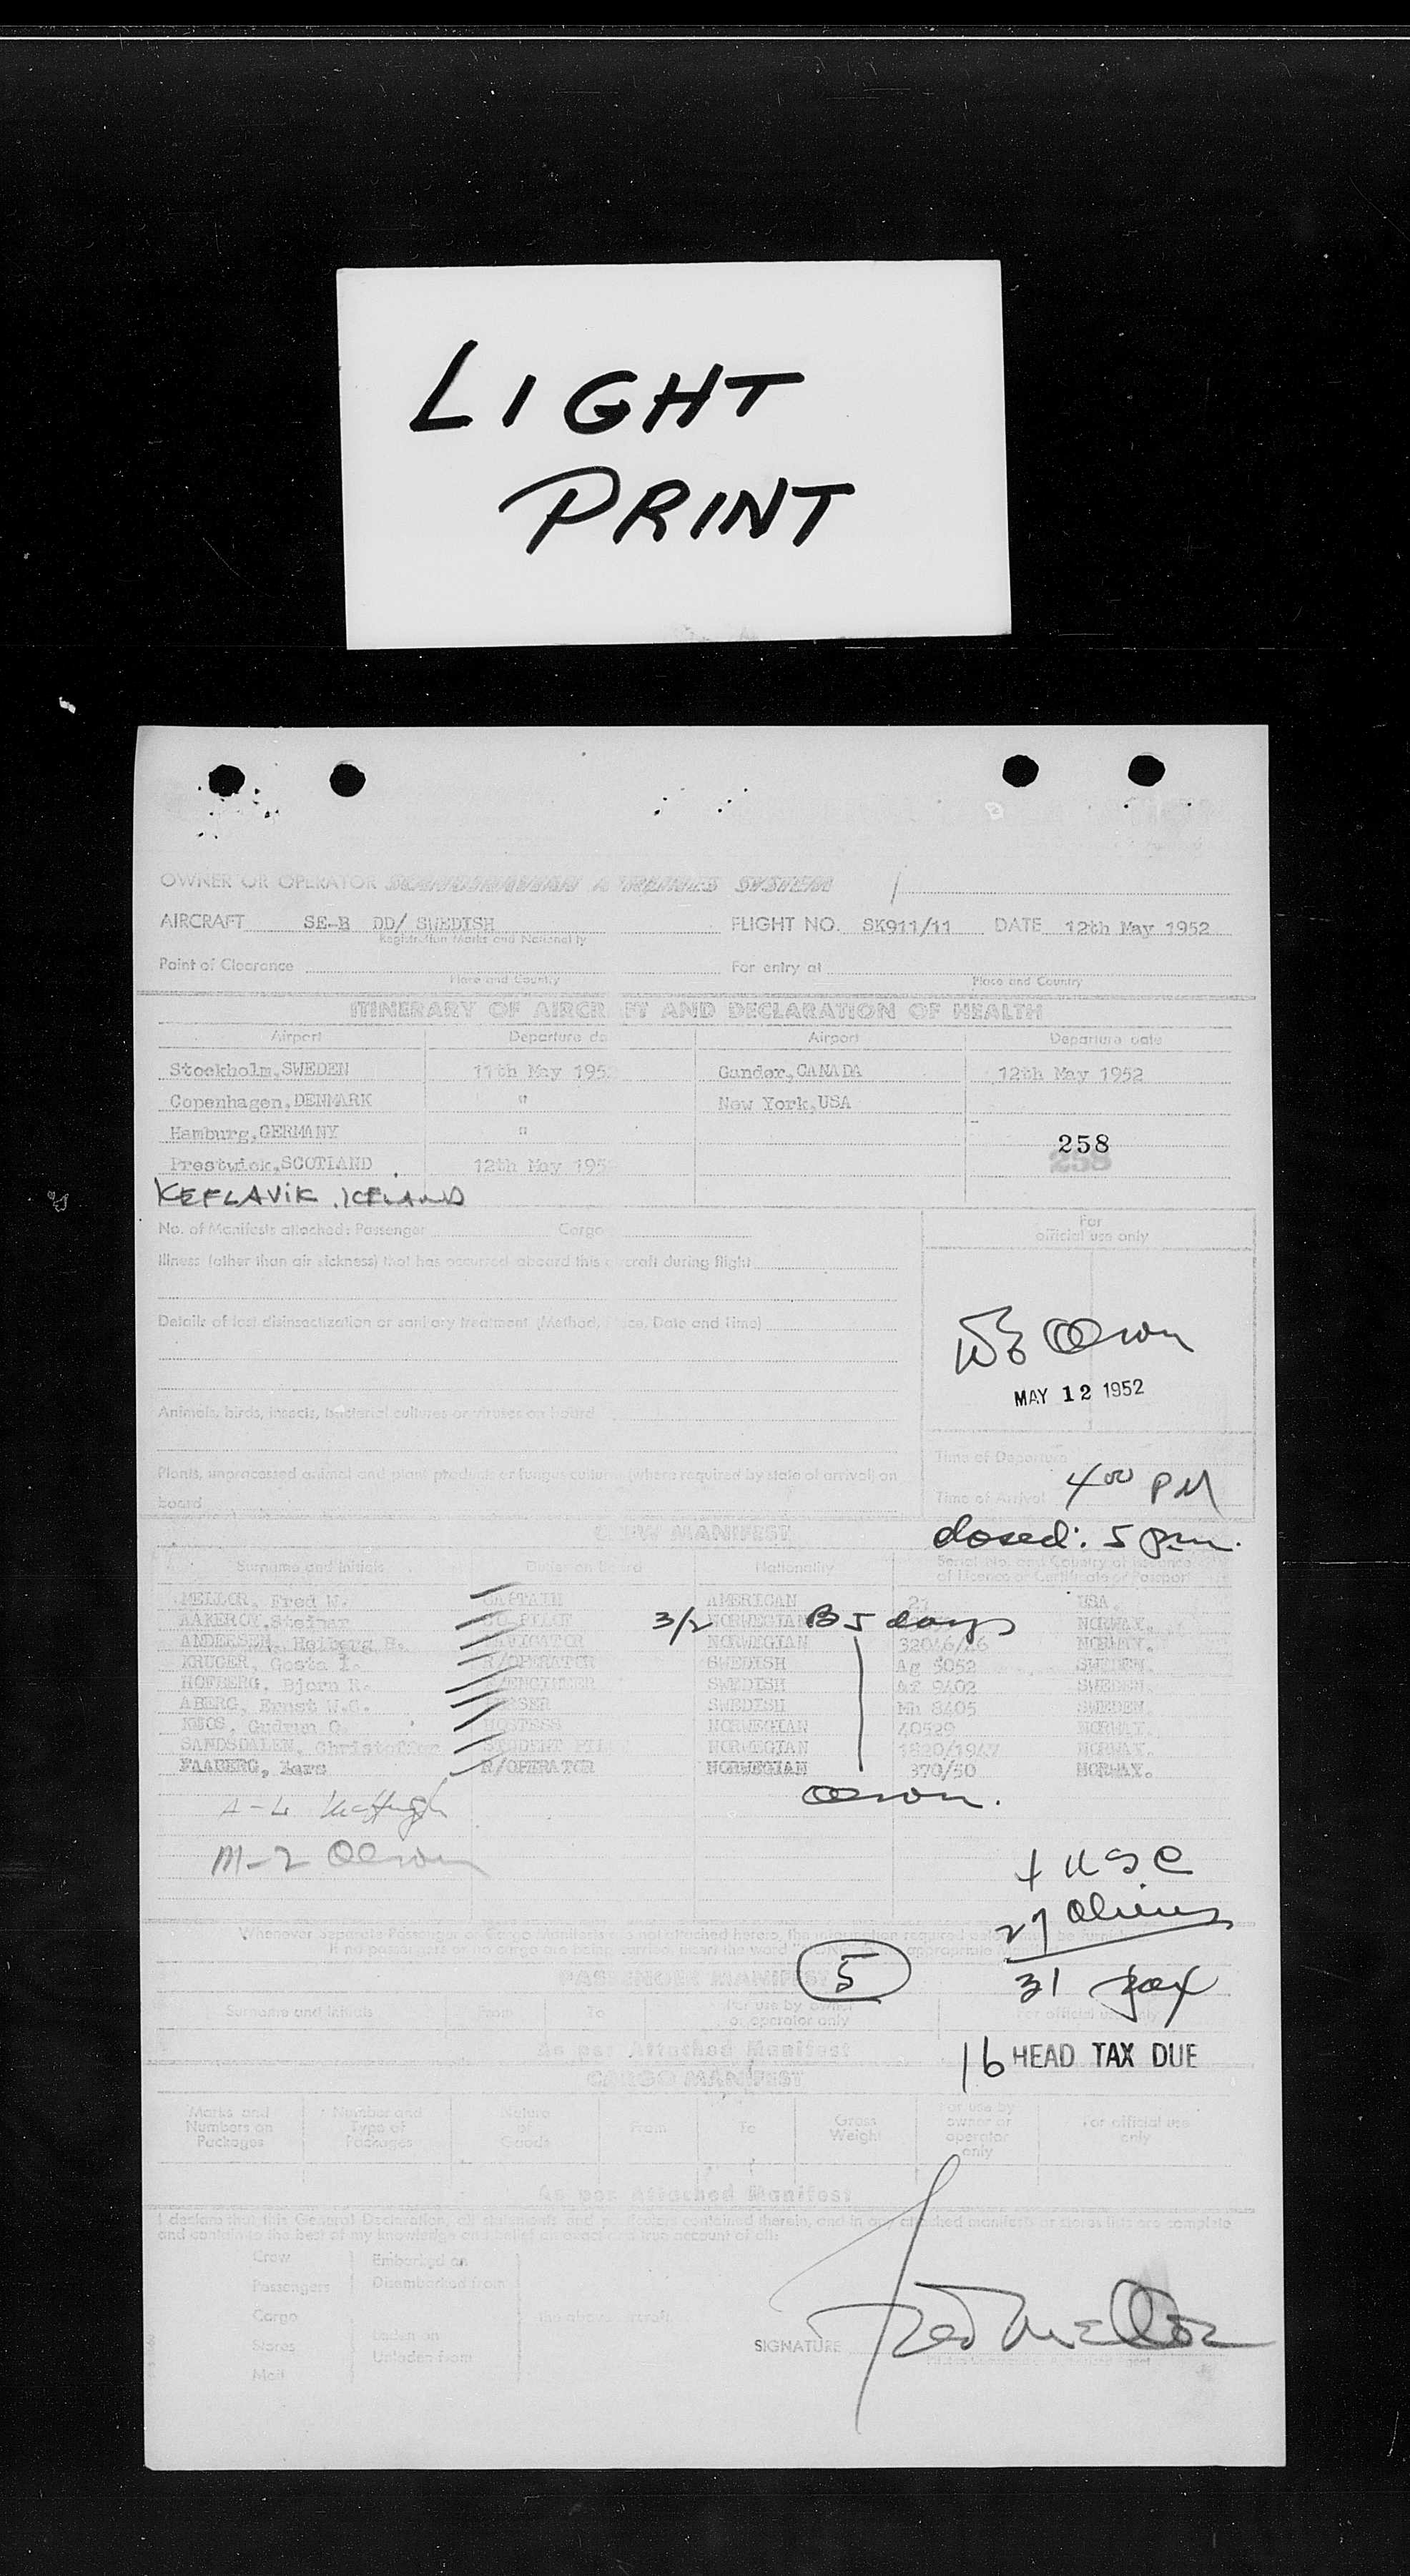 LIGHT
PRINT
OWNER OR OPERATOR SCANDINAVIAN AIRLINES SYSTEM
AIRCRAFT SE-B DD/ SWEDISH FLIGHT NO. SK911/11 DATE 12th May 1952
Registration Marks and Nationality
Point of Clearance For entry at
Place and Country Place and Country
ITINERARY OF AIRCRAFT AND DECLARATION OF HEALTH
Airport Departure da Airport Departure date
Stockholm,SWEDEN 11th May 1952 Gander,CANADA 12th May 1952
Copenhagen,DENMARK " New York,USA
Hamburg,GERMANY " 258
Prestwick,SCOTLAND 12th May 195 258
KEFLAVIK, ICELAND
No. of Manifests attached: Passenger Cargo For
official use only
Illness (other than air sickness) that has occurred aboard this aircraft during flight
Details of last disinsectization or sanitary treatment (Method, Place, Date and Time)
Olson
MAY 12 1952
Animals, birds, insects, bacterial cultures or viruses on board
Time of Departure
Plants, unprocessed animal and plant products or fungus cultures (where required by state of arrival) on
board
Time of Arrival 4 00 PM
closed: 5 pm.
CREW MANIFEST
Surname and Initials Duties on Board Nationality Serial No. and Country of Issuance
of Licence or Certificate or Passport
MELLOR, Fred W. CAPTAIN AMERICAN USA.
AAKEROV, Steinar CO-PILOT 3/2 NORWEGIAN B 5 days NORWAY.
ANDERSEN, Helberg B. NAVIGATOR NORWEGIAN 32046/46 NORWAY.
KRUGER, Gosta I. R/OPERATOR SWEDISH Ag 5052 SWEDEN.
HOFBERG, Bjorn R. ENGINEER SWEDISH Az 9402 SWEDEN.
ABERG, Ernst W.G. PURSER SWEDISH Mh 8405 SWEDEN.
KNOS, Gudrun O. HOSTESS NORWEGIAN 40529 NORWAY.
SANDSDALEN, Christoffer STUDENT PIL NORWEGIAN 1820/1947 NORWAY.
FAABERG, Lars R/OPERATOR NORWEGIAN 370/50 NORWAY.
Olson.
M-2 Olson
4 USC
27 Aliens
Whenever separate Passenger or Cargo Manifests are not attached hereto, the information required below must be furnished
If no passengers or no cargo are being carried, insert the word NONE in appropriate
31 pax
5
PASSENGER MANIFEST
Surname and Initials From To For use by owner
or operator only For official use only
As per Attached Manifest
16 HEAD TAX DUE
CARGO MANIFEST
Marks and
Numbers on
Packages Number and
Type of
Packages Nature
of
Goods From To Gross
Weight For use by
owner or
operator
only For official use
only
As per Attached Manifest
I declare that this General Declaration, all statements and particulars contained therein, and in any attached manifests or stores lists are complete
and contain to the best of my knowledge and belief an exact and true account of all:
Crow Embarked on
Passengers Disembarked from
Cargo the above aircraft
Stores Laden on
Unladen from
Mail
SIGNATURE Fred Mellor